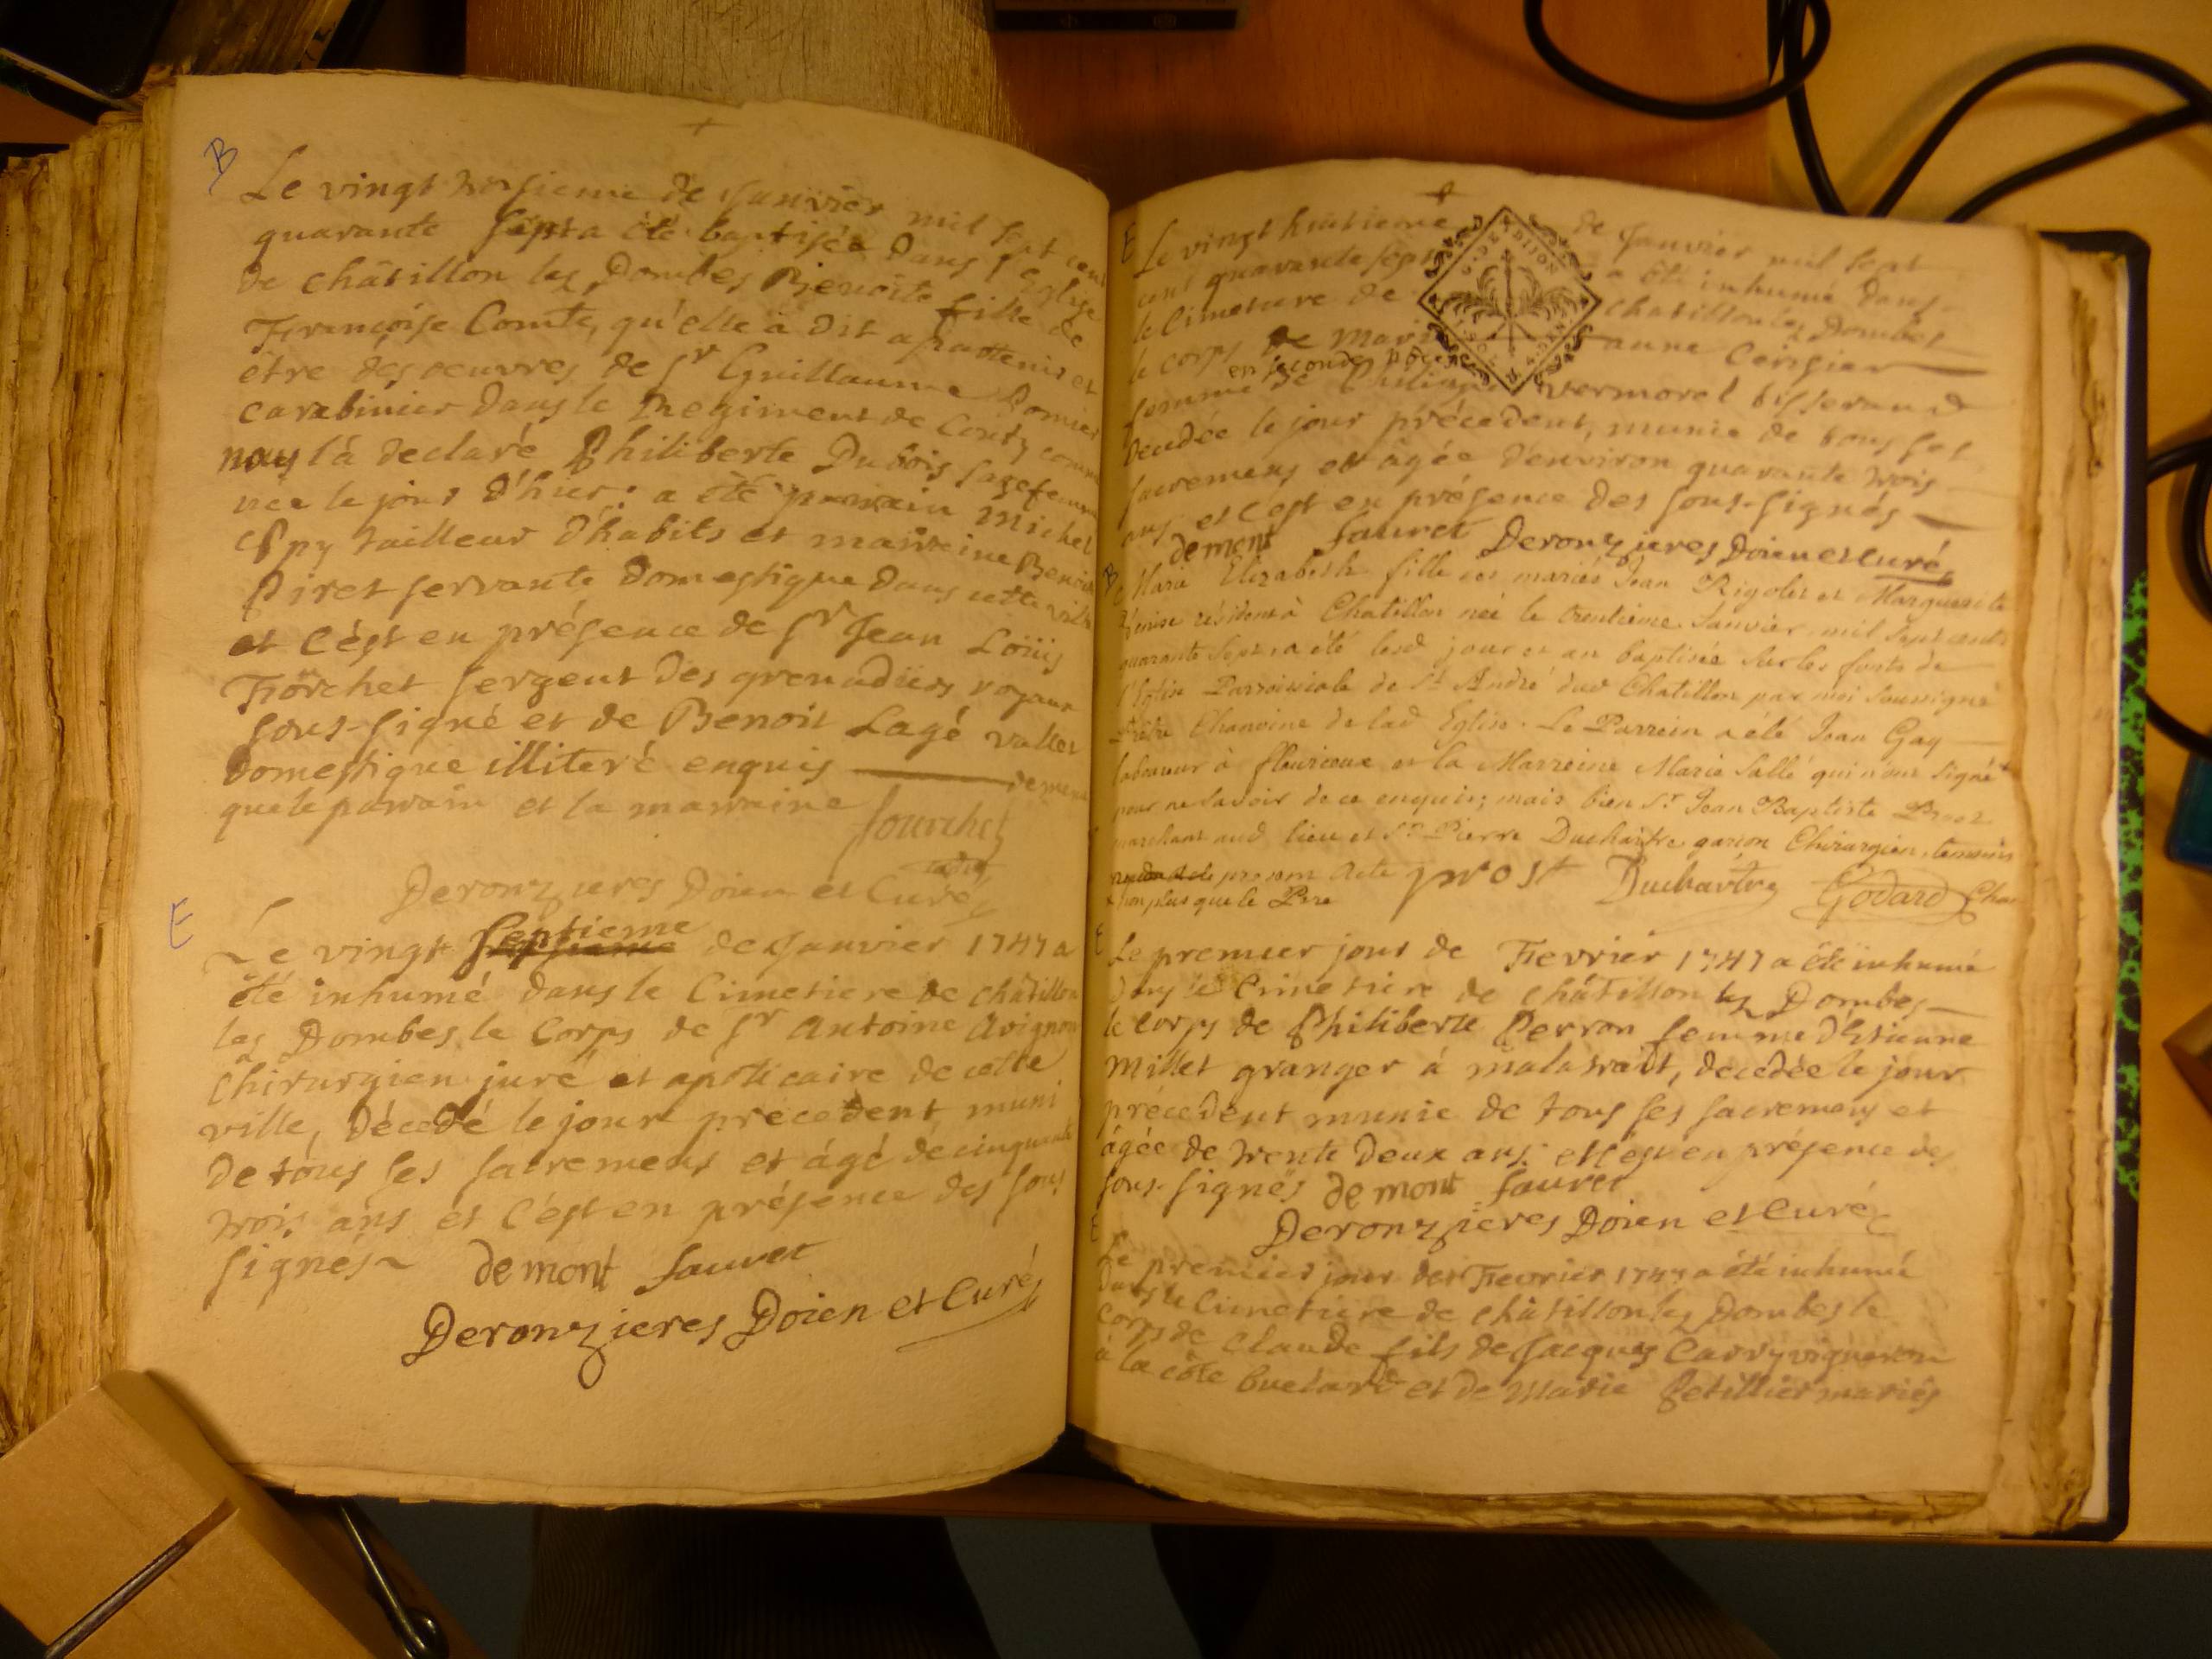 B
Le vingt troisieme de Janvier mil sept cent
quarante sept a été baptisée dans l'Eglise
de châtillon les Dombes Benoite fille de
Françoise Comte, qu'elle a dit apartenir et
être des oeuvres de Sr Guillaume Pomier
carabinier dans le Regiment de Conty comme
nous là declaré Philiberte Dubois sagefemme
née le jour d'hier: a été parrain Michel
tailleur d'habits et marraine Benoite
Piret servante Domestique dans cette ville
et c'est en présence de Sr Jean Loüis
Förchet sergent des grenadiers royaux
sous-signé et de Benoit Lagé vallet
Domestique illiteré enquis
que le parrain et la marraine
fourchet
Deronzieres Doien et Curé
E
Le vingt septieme de Janvier 1747 a
été inhumé dans le Cimetiere de châtillon
les Dombes le Corps de Sr antoine avignon
Chirurgien juré et apoticaire de cette
ville, décedé le jour précedent, muni
de tous ses sacremens et âgé de cinquante
trois ans et c'est en présence des sous
signés demont fauret
Deronzieres Doien et Curé
E
Le vingt huitieme de Janvier mil sept
cent quarante sept a été inhumé dans
le Cimetiere de chatillon les Dombes
le corps de Marie
en secondes noces
femme de Philippe vermorel tisserand
décedée le jour précedent, munie de tous ses
sacremens et âgée d'environ quarante trois
ans et c'est en présence des sous-signés
demont fauret Deronzieres Doien et curé
B
Marie Elizabeth fille des mariés Jean Rigolet et Marguerite
résident à Chatillon née le trentieme Janvier mil sept cents
quarante sept a été lesd jour et an baptisée sur les fonts de
l'Eglise Parroissiale de St André dud Chatillon par moi soussigné
Prêtre Chanoine de lad Eglise. Le Parrein a été Jean Gay
laboureur à fleurieux et la Marreine Marie Sallé qui n'ont signé
pour ne savoir de ce enquis; mais bien Sr Jean Baptiste Prost
marchant aud lieu et Sr Pierre Duchartre garson Chirurgien, temoins
present acte prost Duchartre Godard Cha
+ non plus que le Pere
E
Le premier jour de Fevrier 1747 a été inhumé
dans le Cimetiere de châtillon les Dombes
le corps de Philiberte Perron femme d'Etienne
Millet granger à malatrait, décedée le jour
précedent munie de tous ses sacremens et
âgée de trente deux ans et c'est en présence des
sous-signés demont fauret
Deronzieres Doien et Curé
E
Le premier jour de Fevrier 1747 a été inhumé
dans le Cimetiere de châtillon les Dombes le
corps de Claude fils de Jacques Carry vigneron
à la côte buelard et de Marie Petillier mariés